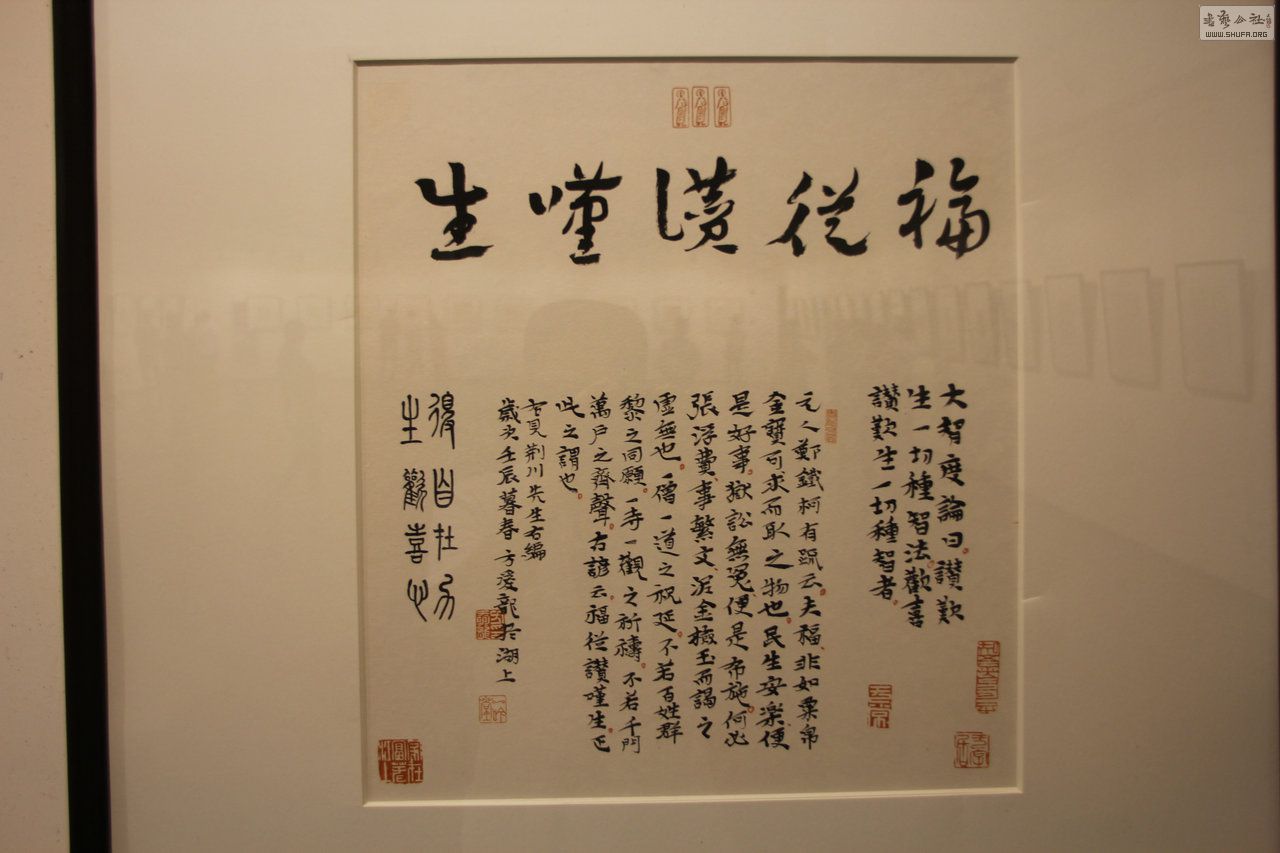 福從讚嘆生
大智度論曰讚歎
生一切種智法歡喜
讚歎生一切種智者
元人鄭鐵柯有疏云夫福非如粟帛
金寶可求而取之物也民生安樂便
是好事獄訟無冤便是布施何必
張浮費事繁文泥金檢玉而謁之
虛無也一僧一道之祝延不若百姓群
黎之同願一寺一觀之祈禱不若千門
萬戶之齊聲古諺云福從讚嘆生正
此之謂也
右見荊川先生右編
歲次壬辰暮春方愛龍於湖上
復自在
生歡喜心
書藝公社
WWW.SHUFA.ORG